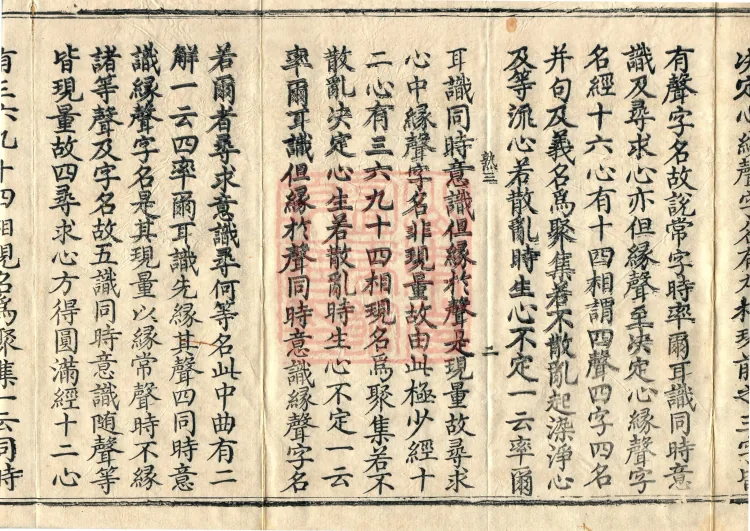 決定心緣聲字名有九相現前
有聲字名故說常字時率爾耳識同時意
識及尋求心亦但緣聲至決定心緣聲字
名經十六心有十四相謂四聲四字四名
并句及義名爲聚集若不散亂起染淨心
及等流心若散亂時生心不定一云率爾
熟三
二
耳識同時意識但緣於聲是現量故尋求
心中緣聲字名非現量故由此極少經十
二心有三六九十四相現名爲聚集若不
散亂決定心生若散亂時生心不定一云
率爾耳識但緣於聲同時意識緣聲字名
若爾者尋求意識尋何等名此中曲有二
解一云四率爾耳識先緣其聲四同時意
識緣聲字名是其現量以緣常聲時不緣
諸等聲及字名故五識同時意識隨聲等
皆現量故四尋求心方得圓滿經十二心
有三六九十四相現名爲聚集一云同時